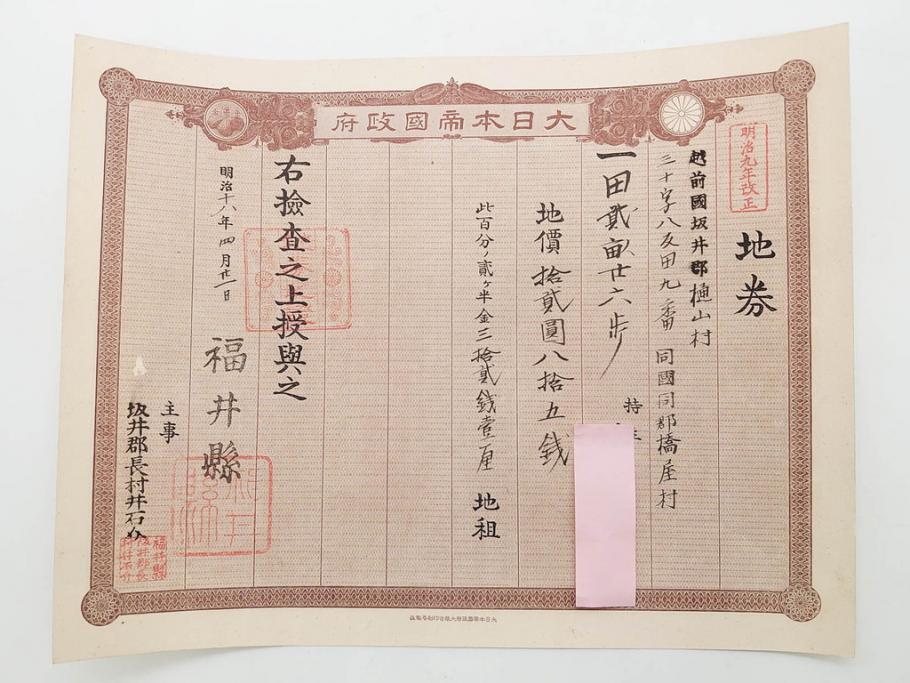 大日本帝國政府
明治九年改正
地券
越前國坂井郡樋山村
三十字八反田九番 同國同郡橋屋村
一田貳畝廿六歩
持主
地價拾貳圓八拾五錢
此百分ノ貳ヶ半金三拾貳錢壹厘 地租
右撿査之上授與之
明治十八年四月廿一日
福井縣
主事
坂井郡長村井石
福井縣
坂井郡長